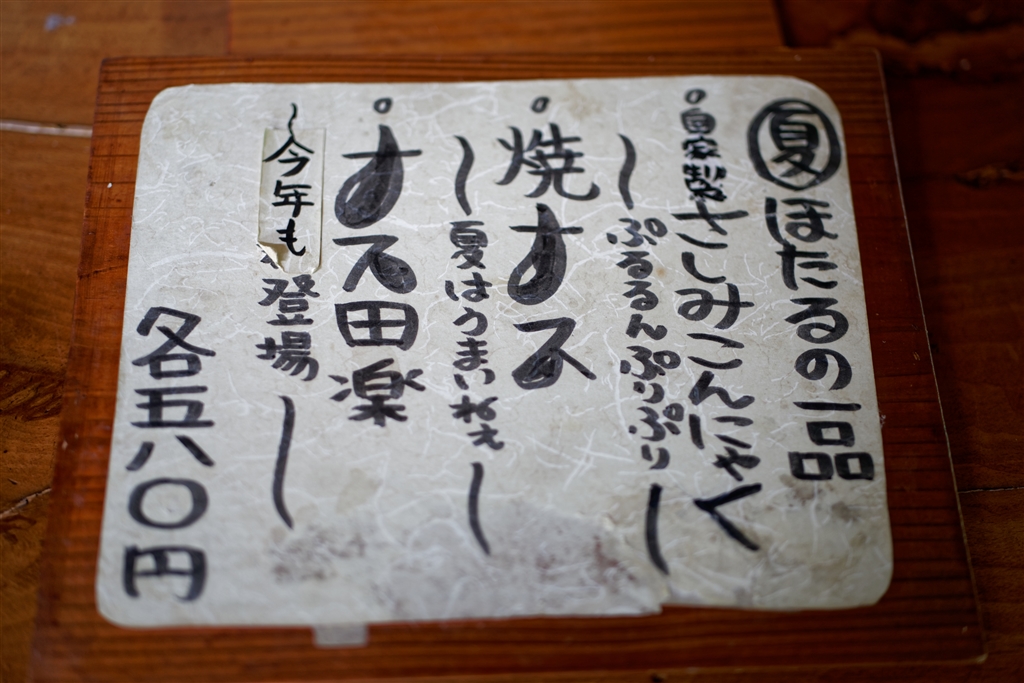 ㊐夏 ほたるの一品
○自家製さしみこんにゃく
～ぷるるんぷりぷり～
○焼ナス
～夏はうまいねぇ～
○ナス田楽
～今年も登場～
各五八〇円